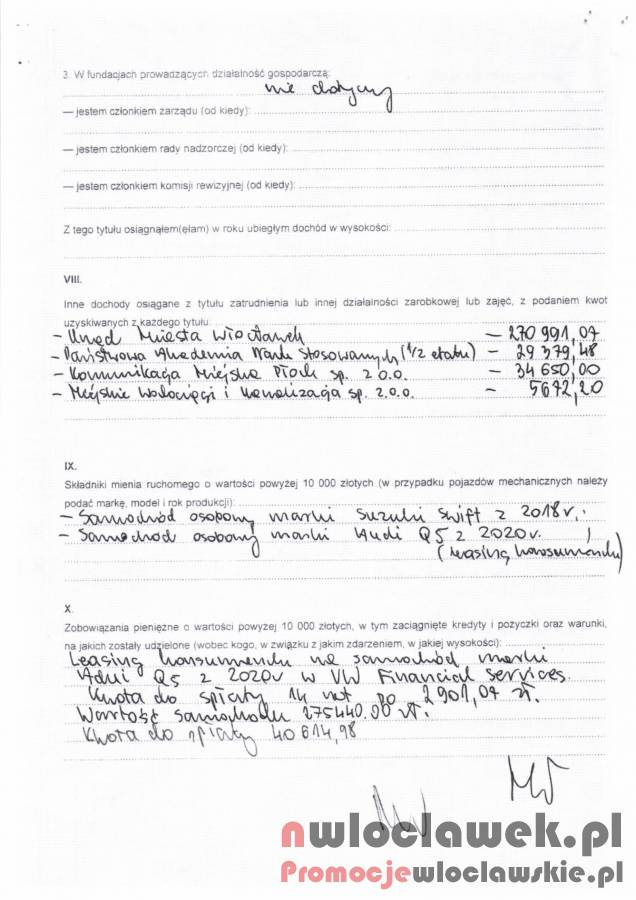 3. W fundacjach prowadzących działalność gospodarczą:
nie dotyczy
— jestem członkiem zarządu (od kiedy):
— jestem członkiem rady nadzorczej (od kiedy):
— jestem członkiem komisji rewizyjnej (od kiedy):
Z tego tytułu osiągnąłem(ęłam) w roku ubiegłym dochód w wysokości:
VIII.
Inne dochody osiągane z tytułu zatrudnienia lub innej działalności zarobkowej lub zajęć, z podaniem kwot
uzyskiwanych z każdego tytułu:
- Urząd Miasta Włocławek - 270 991,07
- Państwowa Akademia Nauk Stosowanych (1/2 etatu) - 29 379,48
- Komunikacja Miejska Płock sp. z o.o. - 34 650,00
- Miejskie Wodociągi i Kanalizacja sp. z o.o. - 5672,20
IX.
Składniki mienia ruchomego o wartości powyżej 10 000 złotych (w przypadku pojazdów mechanicznych należy
podać markę, model i rok produkcji):
- Samochód osobowy marki Suzuki Swift z 2018r.
- Samochód osobowy marki Audi Q5 z 2020r.
(leasing konsumencki)
X.
Zobowiązania pieniężne o wartości powyżej 10 000 złotych, w tym zaciągnięte kredyty i pożyczki oraz warunki,
na jakich zostały udzielone (wobec kogo, w związku z jakim zdarzeniem, w jakiej wysokości):
Leasing konsumencki na samochód marki
Adui Q5 z 2020r w VW Financial Services.
Kwota do spłaty 14 rat po 2901,07 zł.
Wartość samochodu 275440.00 zł.
Kwota do spłaty 40 614,98
nwloclawek.pl
Promocjewloclawskie.pl